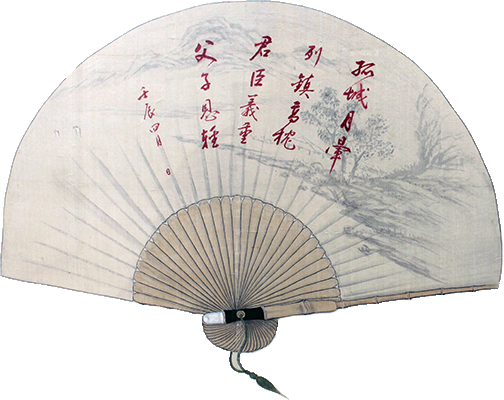 孤城月暈
列鎮高枕
君臣義重
父子恩輕
壬辰四月 日